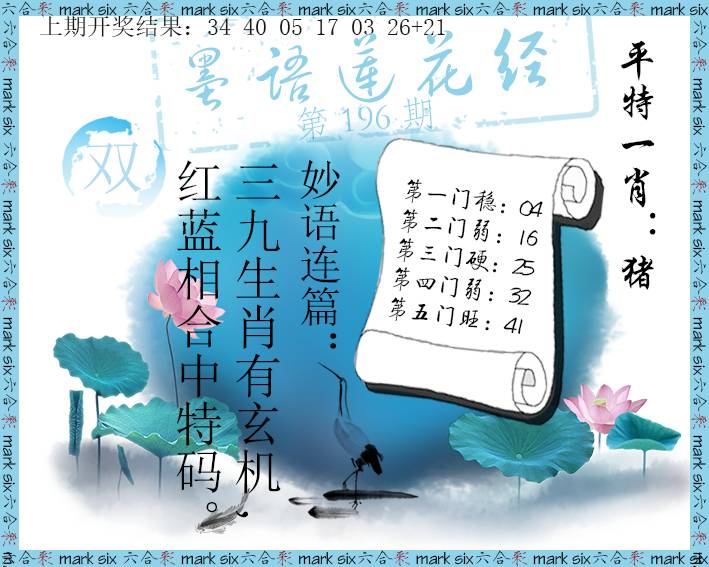 上期开奖结果：34 40 05 17 03 26+21
墨语莲花经
第 196 期
双
平特一肖：猪
妙语连篇：
三九生肖有玄机，
红蓝相合中特码。
第一门稳：04
第二门弱：16
第三门硬：25
第四门弱：32
第五门旺：41
六合彩 mark six六合彩 mark six六合彩 mark six六合彩 mark six六合彩 mark six六合彩